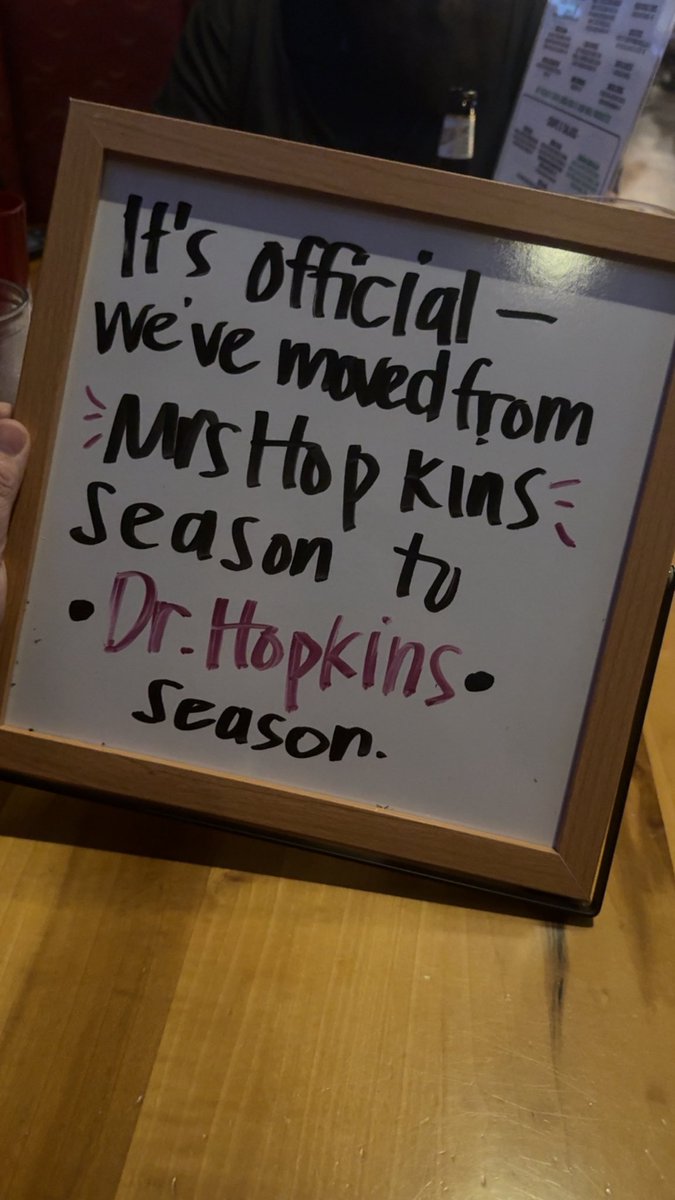 It's official —
we've moved from
Mrs Hopkins
season to
• Dr. Hopkins •
season.